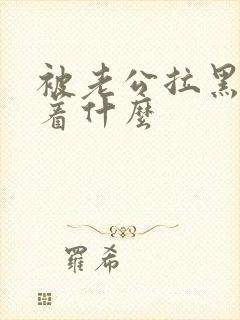 被老公拉黑
着什麼
羅希